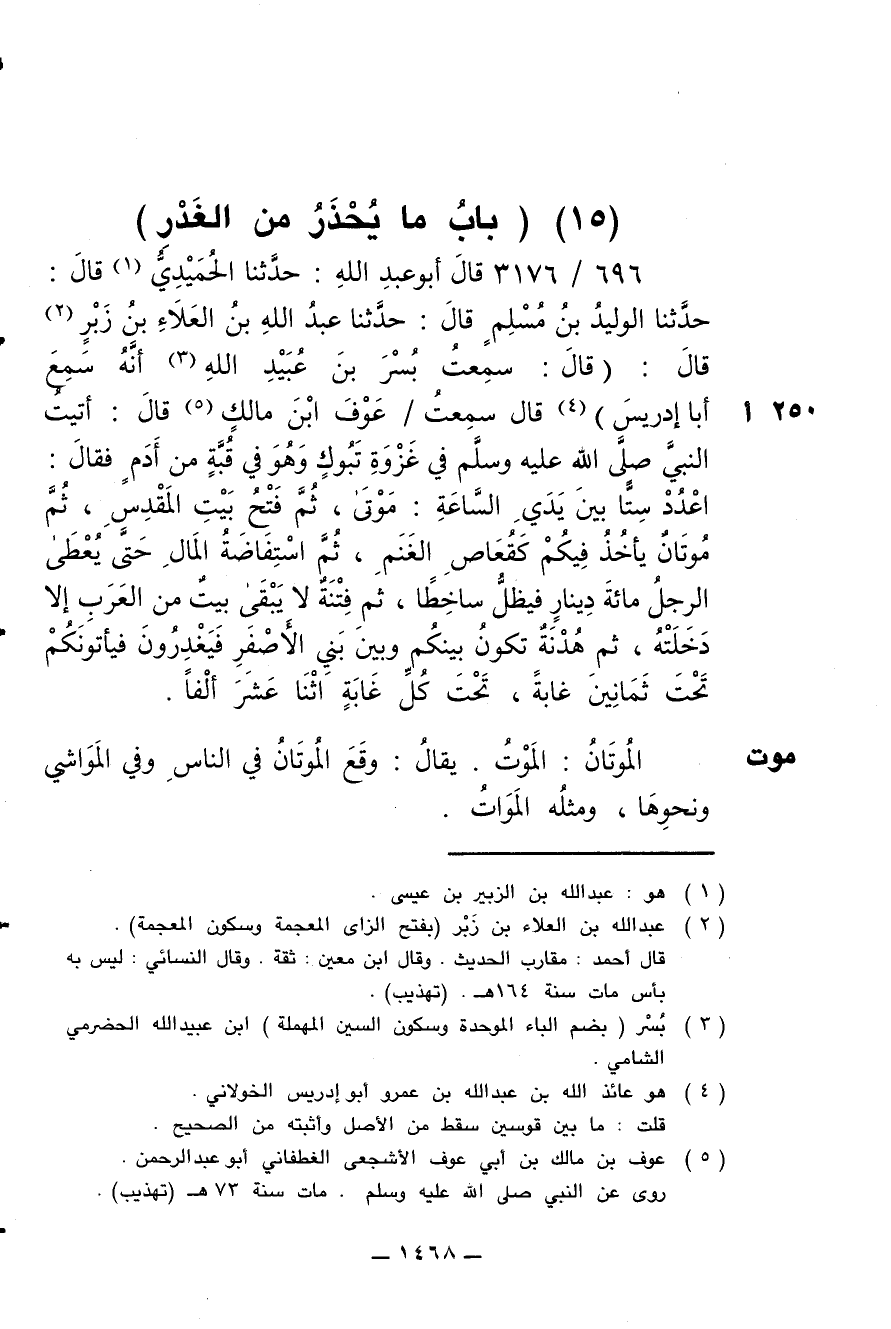 (١٥) ( بابُ ما يُحْذَرُ من الغَدْرِ )
٦٩٦ / ٣١٧٦ قالَ أبوعبدِ اللهِ : حدَّثنا الحُمَيْدِيُّ (١) قالَ :
حدَّثنا الوليدُ بنُ مُسْلِمٍ قالَ : حدَّثنا عبدُ اللهِ بنُ العَلَاءِ بنُ زَبْرٍ (٢)
قالَ : ( قالَ : سمِعتُ بُسْرَ بنَ عُبَيْدِ اللهِ (٣) أنَّهُ سَمِعَ
٢٥٠ أ أبا إدريسَ ) (٤) قال سمعتُ / عَوْفَ ابْنَ مالكٍ (٥) قالَ : أتيتُ
النبيَّ صلَّى الله عليه وسلَّم في غَزْوَةِ تَبُوكٍ وَهُوَ في قُبَّةٍ من أَدَمٍ فقالَ :
اعْدُدْ سِتًّا بينَ يَدَيِ السَّاعَةِ : مَوْتَى ، ثُمَّ فَتْحُ بَيْتِ المَقْدِسِ ، ثُمَّ
مُوتَانٌ يأخُذُ فِيكُمْ كَقُعَاصِ الغَنَمِ ، ثُمَّ اسْتِفَاضَةُ المَالِ حَتَّى يُعْطَى
الرجلُ مائةَ دِينارٍ فيظلُّ ساخِطًا ، ثم فِتْنَةٌ لا يَبْقَى بيتٌ من العَرَبِ إلا
دَخَلَتْهُ ، ثم هُدْنَةٌ تكونُ بينكُم وبينَ بَنِي الأَصْفَرِ فَيَغْدِرُونَ فيأتونَكُمْ
تَحْتَ ثَمَانِينَ غابةً ، تَحْتَ كُلِّ غَابَةٍ اثْنَا عَشَرَ ألْفاً .
موت المُوتَانُ : المَوْتُ . يقالُ : وقَعَ المُوتَانُ في الناسِ وفي المَوَاشي
ونحوِهَا ، ومثلُه المَوَاتُ .
( ١ ) هو : عبدالله بن الزبير بن عيسى .
( ٢ ) عبدالله بن العلاء بن زَبْر (بفتح الزاى المعجمة وسكون المعجمة) .
قال أحمد : مقارب الحديث . وقال ابن معين : ثقة . وقال النسائي : ليس به
بأس مات سنة ١٦٤هـ . (تهذيب) .
( ٣ ) بُسْر ( بضم الباء الموحدة وسكون السين المهملة ) ابن عبيدالله الحضرمي
الشامي .
( ٤ ) هو عائذ الله بن عبدالله بن عمرو أبو إدريس الخولاني .
قلت : ما بين قوسين سقط من الأصل وأثبته من الصحيح .
( ٥ ) عوف بن مالك بن أبي عوف الأشجعى الغطفاني أبو عبدالرحمن .
روى عن النبي صلى الله عليه وسلم . مات سنة ٧٣ هـ (تهذيب) .
— ١٤٦٨ —